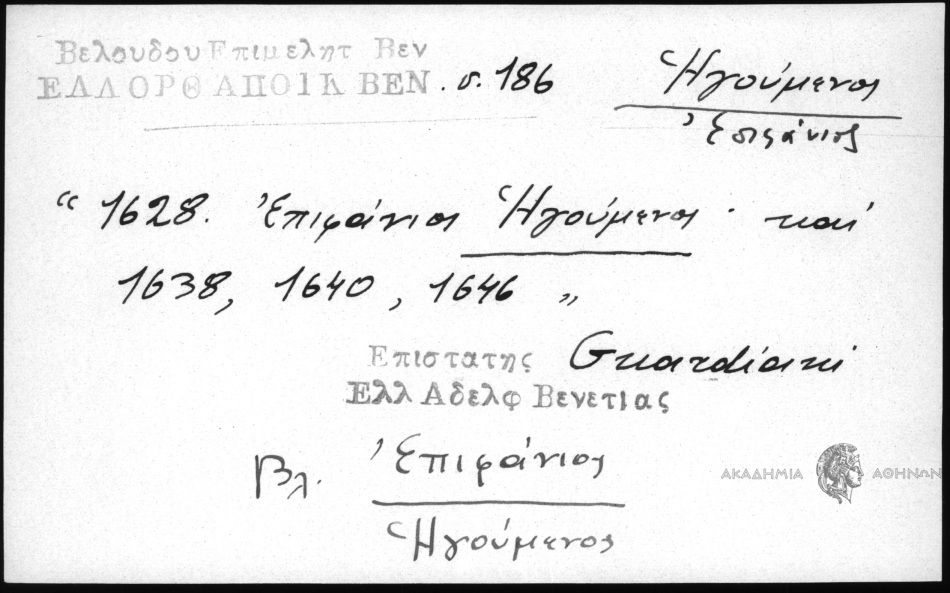 Βελουδου Επιμελητ Βεν
ΕΛΛΟΡΘ ΑΠΟΙΚ ΒΕΝ. σ. 186
Ἡγούμενος
Ἐπιφάνιος
“ 1628. Ἐπιφάνιος Ἡγούμενος · καὶ
1638, 1640, 1646 „
Επιστατης Guardiani
Ελλ Αδελφ Βενετιας
Βλ. Ἐπιφάνιος
Ἡγούμενος
ΑΚΑΔΗΜΙΑ ΑΘΗΝΩΝ